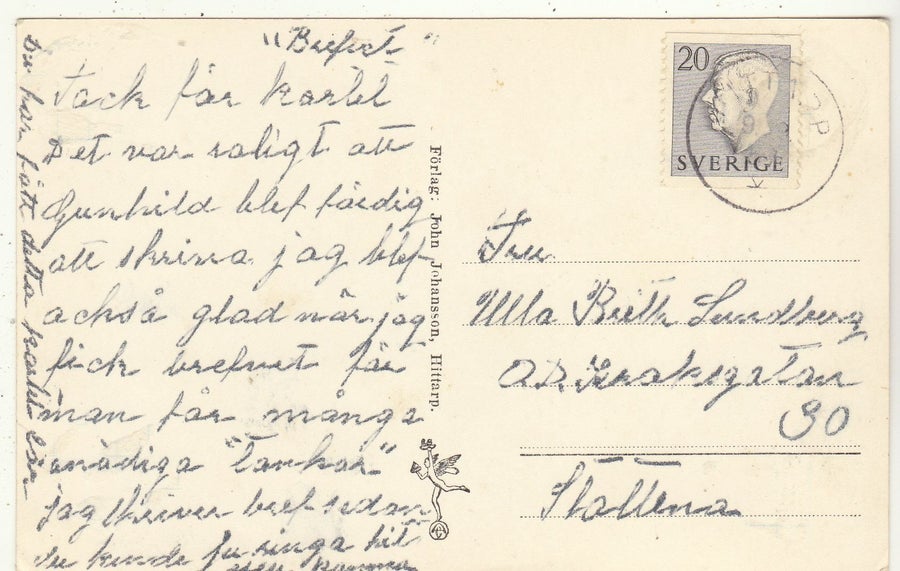 "Brefvet"
Tack för kortet
Det var roligt att
Gunhild blef färdig
att skriva jag blef
också glad när jag
fick brefvet för
man får många
onödiga "Tankar"
jag skriver bref sedan
du kunde ju ringa hit
Du har fått detta kortet
Förlag: John Johansson, Hittarp.
20
SVERIGE
Fru
Ulla Britt Lundberg
90
Stattena